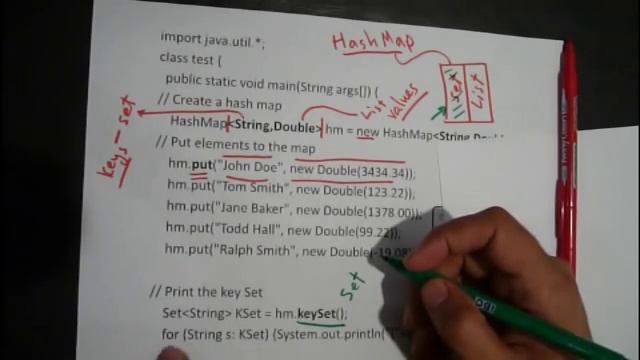 import java.util.*;
HashMap
class test {
public static void main(String args[]) {
set
List
// Create a hash map
List values
HashMap<String,Double> hm = new HashMap<String,Double
keys - set
// Put elements to the map
hm.put("John Doe", new Double(3434.34));
hm.put("Tom Smith", new Double(123.22));
hm.put("Jane Baker", new Double(1378.00));
hm.put("Todd Hall", new Double(99.22));
hm.put("Ralph Smith", new Double(-19.08)
set
// Print the key Set
Set<String> KSet = hm.keySet();
for (String s: KSet) {System.out.println(